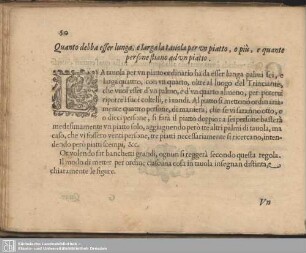 80
Quanto debba esser lunga, e larga la tauola per vn piatto, o più, e quante
persone stiano ad vn piatto.
LA tauola per vn piatto ordinario hà da esser lunga palmi sei, e
larga quattro, con vn quarto, oltre al luogo del Trinciante,
che vuol esser d'vn palmo, ed vn quarto almeno, per poterui
riporre i suoi coltelli, e tondi. Al piatto si mettono ordinariame-
te sei persone,
o dieci persone, si farà il piatto doppio: a sei persone basterà
medesimamente vn piatto solo, aggiungendo però tre altri palmi di tauola, ma
caso, che vi fussero venti persone, tre piatti necessariamente si ricercano, inten-
dendo però piatti scempi, &c.
Or volendo far banchetti grandi, ognun si reggerà secondo questa regola.
Il modo di metter per ordine ciascuna cosa in tauola insegnan distinta, e
chiaramente le figure.
Vn